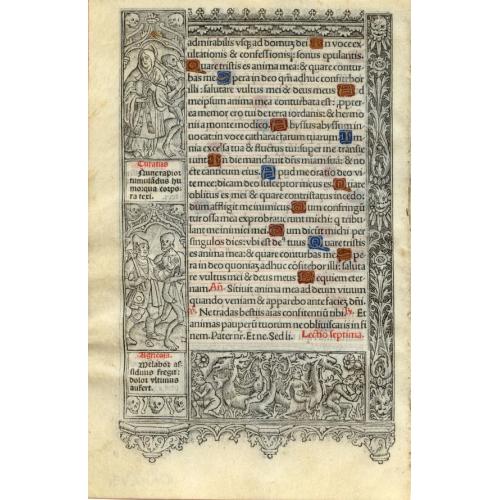 admirabilis vsq; ad domuz dei In voce ex
ultationis & confessionis: sonus epulantis.
Quare tristis es anima mea: & quare contur
bas me Spera in deo qm̄ adhuc confitebor
illi: salutare vultus mei & deus meus Ad
meipsum anima mea conturbata est: ppter
ea memor ero tui de terra iordanis: & hermo
nii a monte modico. Abyssus abyssum in
uocat: in voce catharactarum tuarum. Om
nia excelsa tua & fluctus tui: super me transie
runt In die mandauit dn̄s miam suā: & no
cte canticum eius. Apud me oratio deo vi
te mee: dicam deo susceptor meus es Quare
oblitus es mei & quare contristatus incedo:
dum affligit me inimicus Dum confringū
tur ossa mea: exprobrauerunt michi: q tribu
lant me inimici mei. Dum dicūt michi per
singulos dies: vbi est de9 tuus Quare tristis
es anima mea: & quare conturbas me Spe
ra in deo quoniaz adhuc cōfitebor illi: saluta
re vultus mei & deus meus Requiem eter
nam. Añ. Sitiuit anima mea ad deum viuum
quando veniam & apparebo ante faciez dn̄i
Ne tradas bestiis aīas confitentiū tibi Et
animas pauperū tuorum ne obliuiscaris in fi
nem. Pater nr. Et ne. Sed li. Lectio septima.
Curatus
Nunc rapior
tumulādus hu
moqua corpo
ra texi.
Agricola.
Me labor as
siduus fregit:
dolor vltimus
aufert.